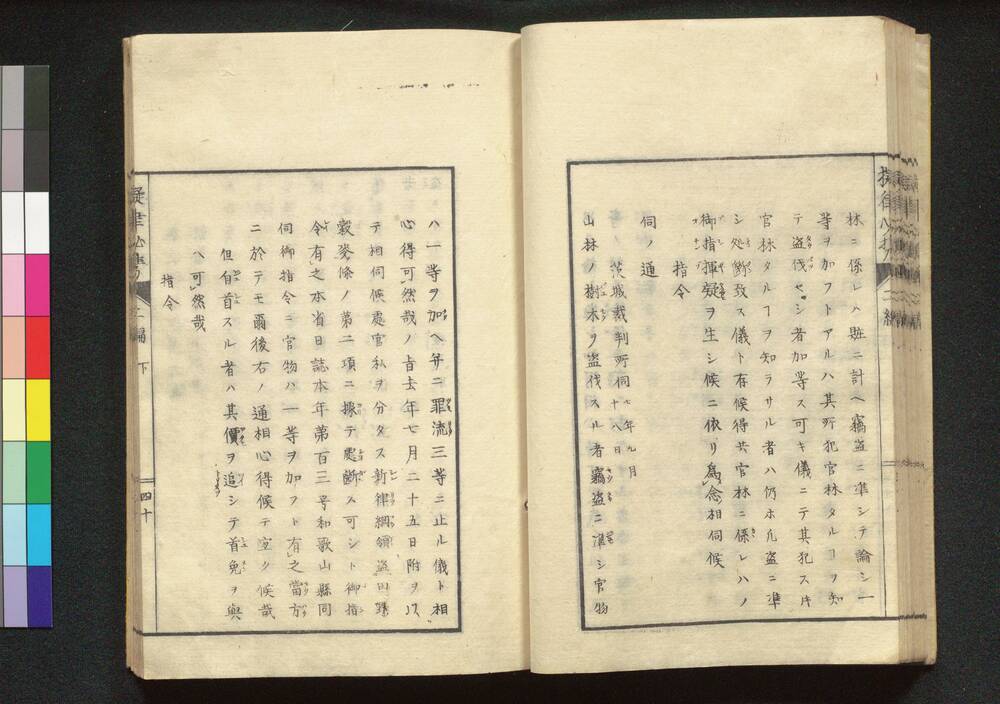 林ニ係レハ賍ニ計ヘ竊盗ニ準シテ論シ一
等ヲ加フトアルハ其所犯官林タルヿヲ知
テ盗伐セシ者加等ス可キ儀ニテ其犯ス時
官林タルヿヲ知ラサル者ハ仍ホ凡盗ニ準
シ処断致ス儀ト存候得共官林ニ係レハノ
御指揮疑ヲ生シ候ニ依リ為念相伺候
指令
伺ノ通
茨城裁判所伺七年九月十八日
山林ノ樹木ヲ盗伐スル者竊盗ニ準シ官物
二編
ハ一等ヲ加ヘ并ニ罪流三等ニ止ル儀ト相
心得可然哉ノ旨去年七月二十五日附ヲ以
テ相伺候處官私ヲ分タス新律綱領盗田野
穀麥條ノ第二項ニ據テ處断ス可シト御指
令有之本省日誌本年第百三号和歌山縣同
伺御指令ニ官物ハ一等ヲ加フト有之當方
ニ於テモ爾後右ノ通相心得候テ宜ク候哉
但自首スル者ハ其價ヲ追シテ首免ヲ與
ヘ可然哉
指令
二編 下
四十